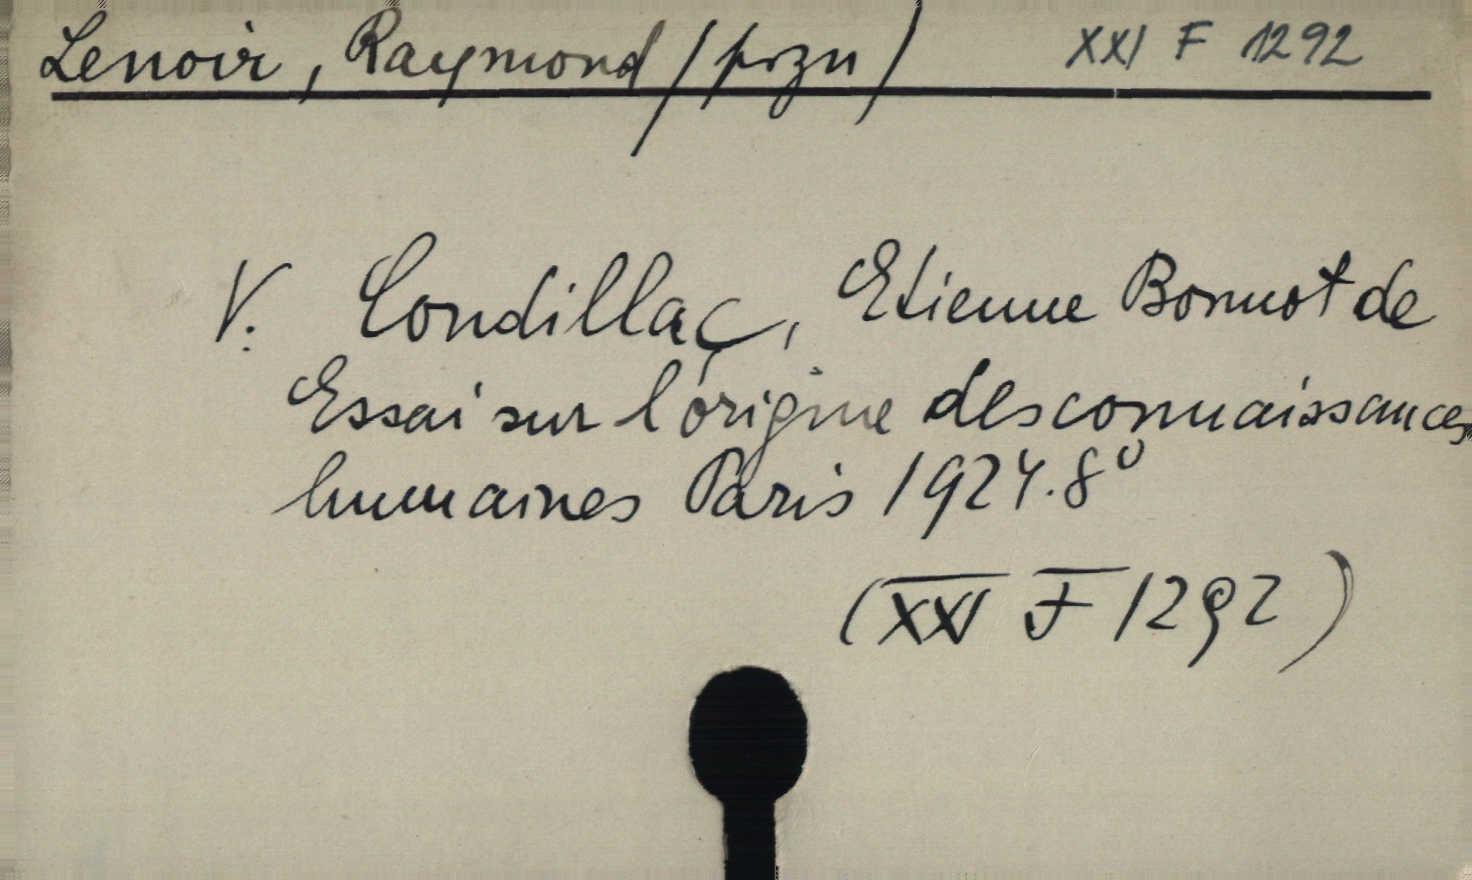 Lenoir, Raymond /przn/ XXI F 1292
V. Condillac, Etienne Bonnot de
Essai sur l'origine des connaissances
humaines Paris 1924. 8°
(XXI F 1292)